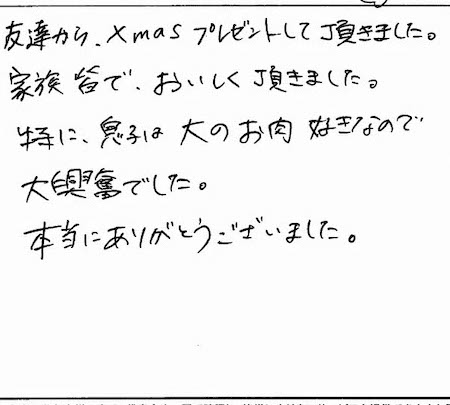 友達から、Xmasプレゼントして頂きました。
家族皆で、おいしく頂きました。
特に、息子は大のお肉好きなので
大興奮でした。
本当にありがとうございました。